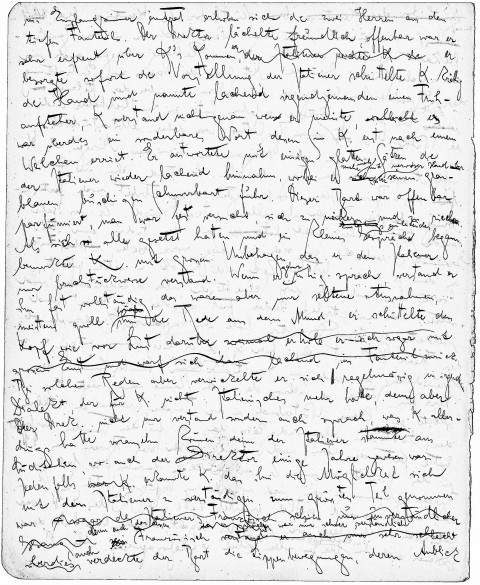 im Empfangszimmer eintrat erhoben sich die zwei Herren aus den
tiefen Fauteuils. Der Direktor lächelte freundlich, offenbar war er
sehr erfreut über K's Kommen, er
besorgte sofort die Vorstellung der Italiener schüttelte K. kräftig
die Hand und nannte lachend irgendjemanden einen Früh-
aufsteher, K. verstand nicht genau wen er meinte, es
war überdies ein sonderbares Wort dessen Sinn K. erst nach einem
Weilchen erriet. Er antwortete mit einigen glatten Sätzen die
der Italiener wieder lachend hinnahm, wobei er mehrmals mit nervöser Hand über seinen grau-
blauen buschigen Schnurrbart fuhr. Dieser Bart war offenbar
parfümiert, man war fast versucht sich zu nähern und zu riechen
Als sich alle gesetzt hatten und ein kleines einleitendes Gespräch begann
bemerkte K. mit grossem Unbehagen, dass er den Italiener
nur bruchstückweise verstand. Wenn er ganz ruhig sprach verstand er
ihn fast vollständig das waren aber nur seltene Ausnahmen,
meistens quoll ihm die Rede aus dem Mund, er schüttelte den
Kopf wie vor Lust darüber
Bei solchen Reden aber verwickelte er sich regelmässig in irgend
Dialekt, der für K. nichts Italienisches mehr hatte, den aber
der Direktor nicht nur verstand sondern auch sprach was K. aller-
dings hätte voraussehn können denn der Italiener stammte aus
Süditalien wo auch der Direktor einige Jahre gewesen war.
Jedenfalls erkannte K. dass ihm die Möglichkeit sich
mit dem Italiener zu verständigen zum grössten Teil genommen
war
denn auch dessen Französisch war nur schwer verständlich
auch verdeckte der Bart die Lippenbewegungen, deren Anblick